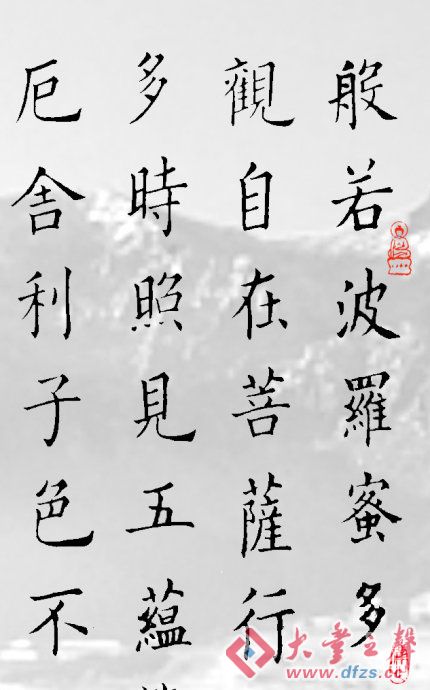 般若波羅蜜多
觀自在菩薩行
多時照見五蘊
厄舍利子色不
大童之聲
www.dfzs.cc